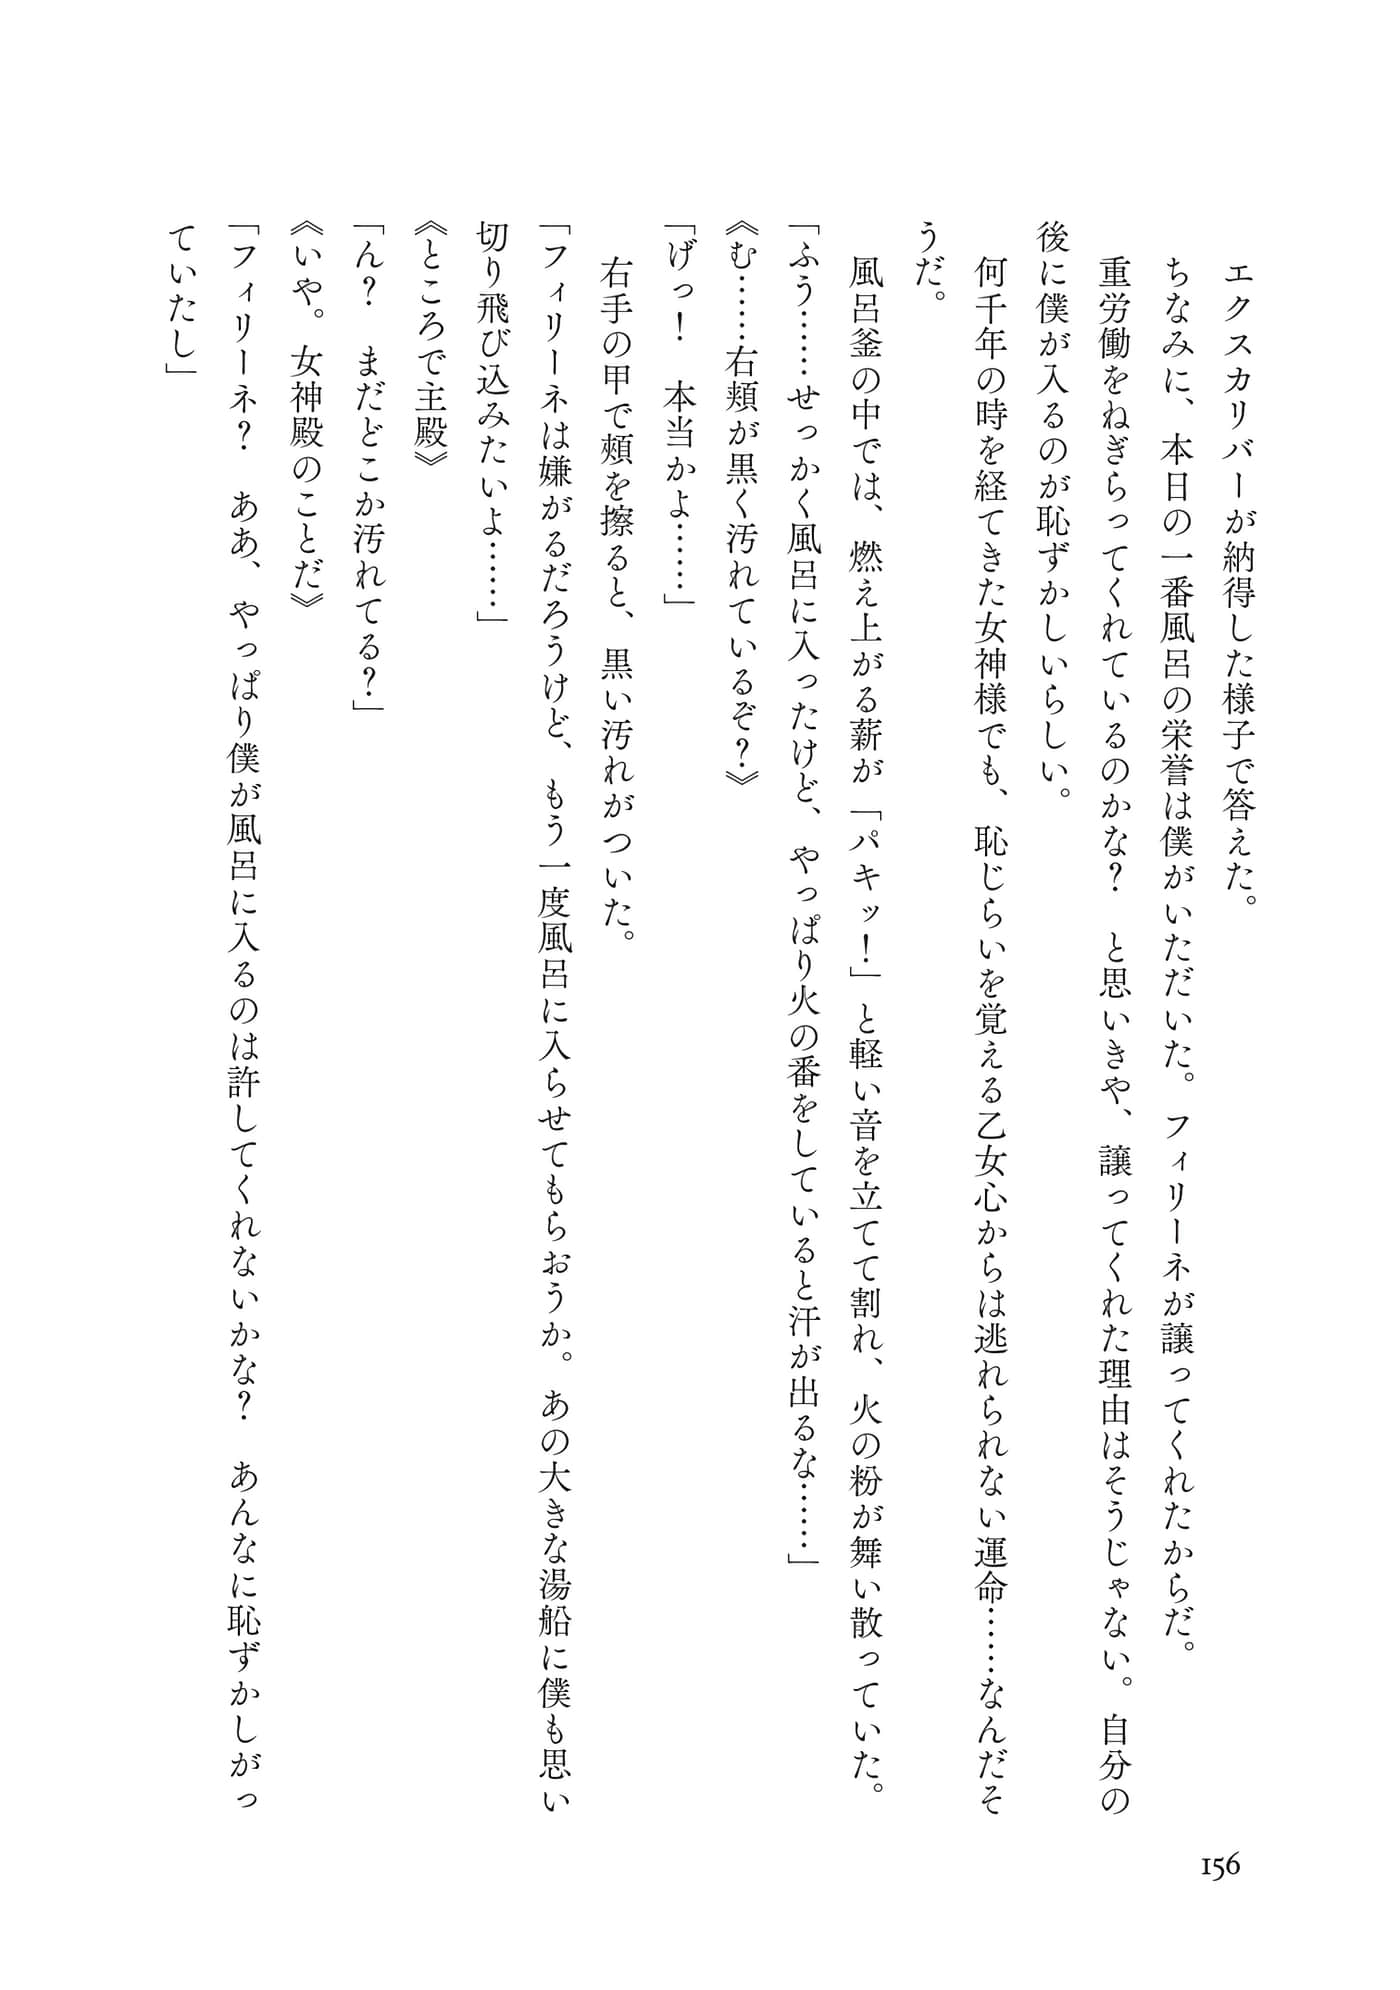 エクスカリバーが納得した様子で答えた。
　ちなみに、本日の一番風呂の栄誉は僕がいただいた。フィリーネが譲ってくれたからだ。
　重労働をねぎらってくれているのかな？　と思いきや、譲ってくれた理由はそうじゃない。自分の
後に僕が入るのが恥ずかしいらしい。
　何千年の時を経てきた女神様でも、恥じらいを覚える乙女心からは逃れられない運命……なんだそ
うだ。
　風呂釜の中では、燃え上がる薪が「パキッ！」と軽い音を立てて割れ、火の粉が舞い散っていた。
「ふう……せっかく風呂に入ったけど、やっぱり火の番をしていると汗が出るな……」
《む……右頬が黒く汚れているぞ？》
「げっ！　本当かよ……」
　右手の甲で頬を擦ると、黒い汚れがついた。
「フィリーネは嫌がるだろうけど、もう一度風呂に入らせてもらおうか。あの大きな湯船に僕も思い
切り飛び込みたいよ……」
《ところで主殿》
「ん？　まだどこか汚れてる？」
《いや。女神殿のことだ》
「フィリーネ？　ああ、やっぱり僕が風呂に入るのは許してくれないかな？　あんなに恥ずかしがっ
ていたし」
156